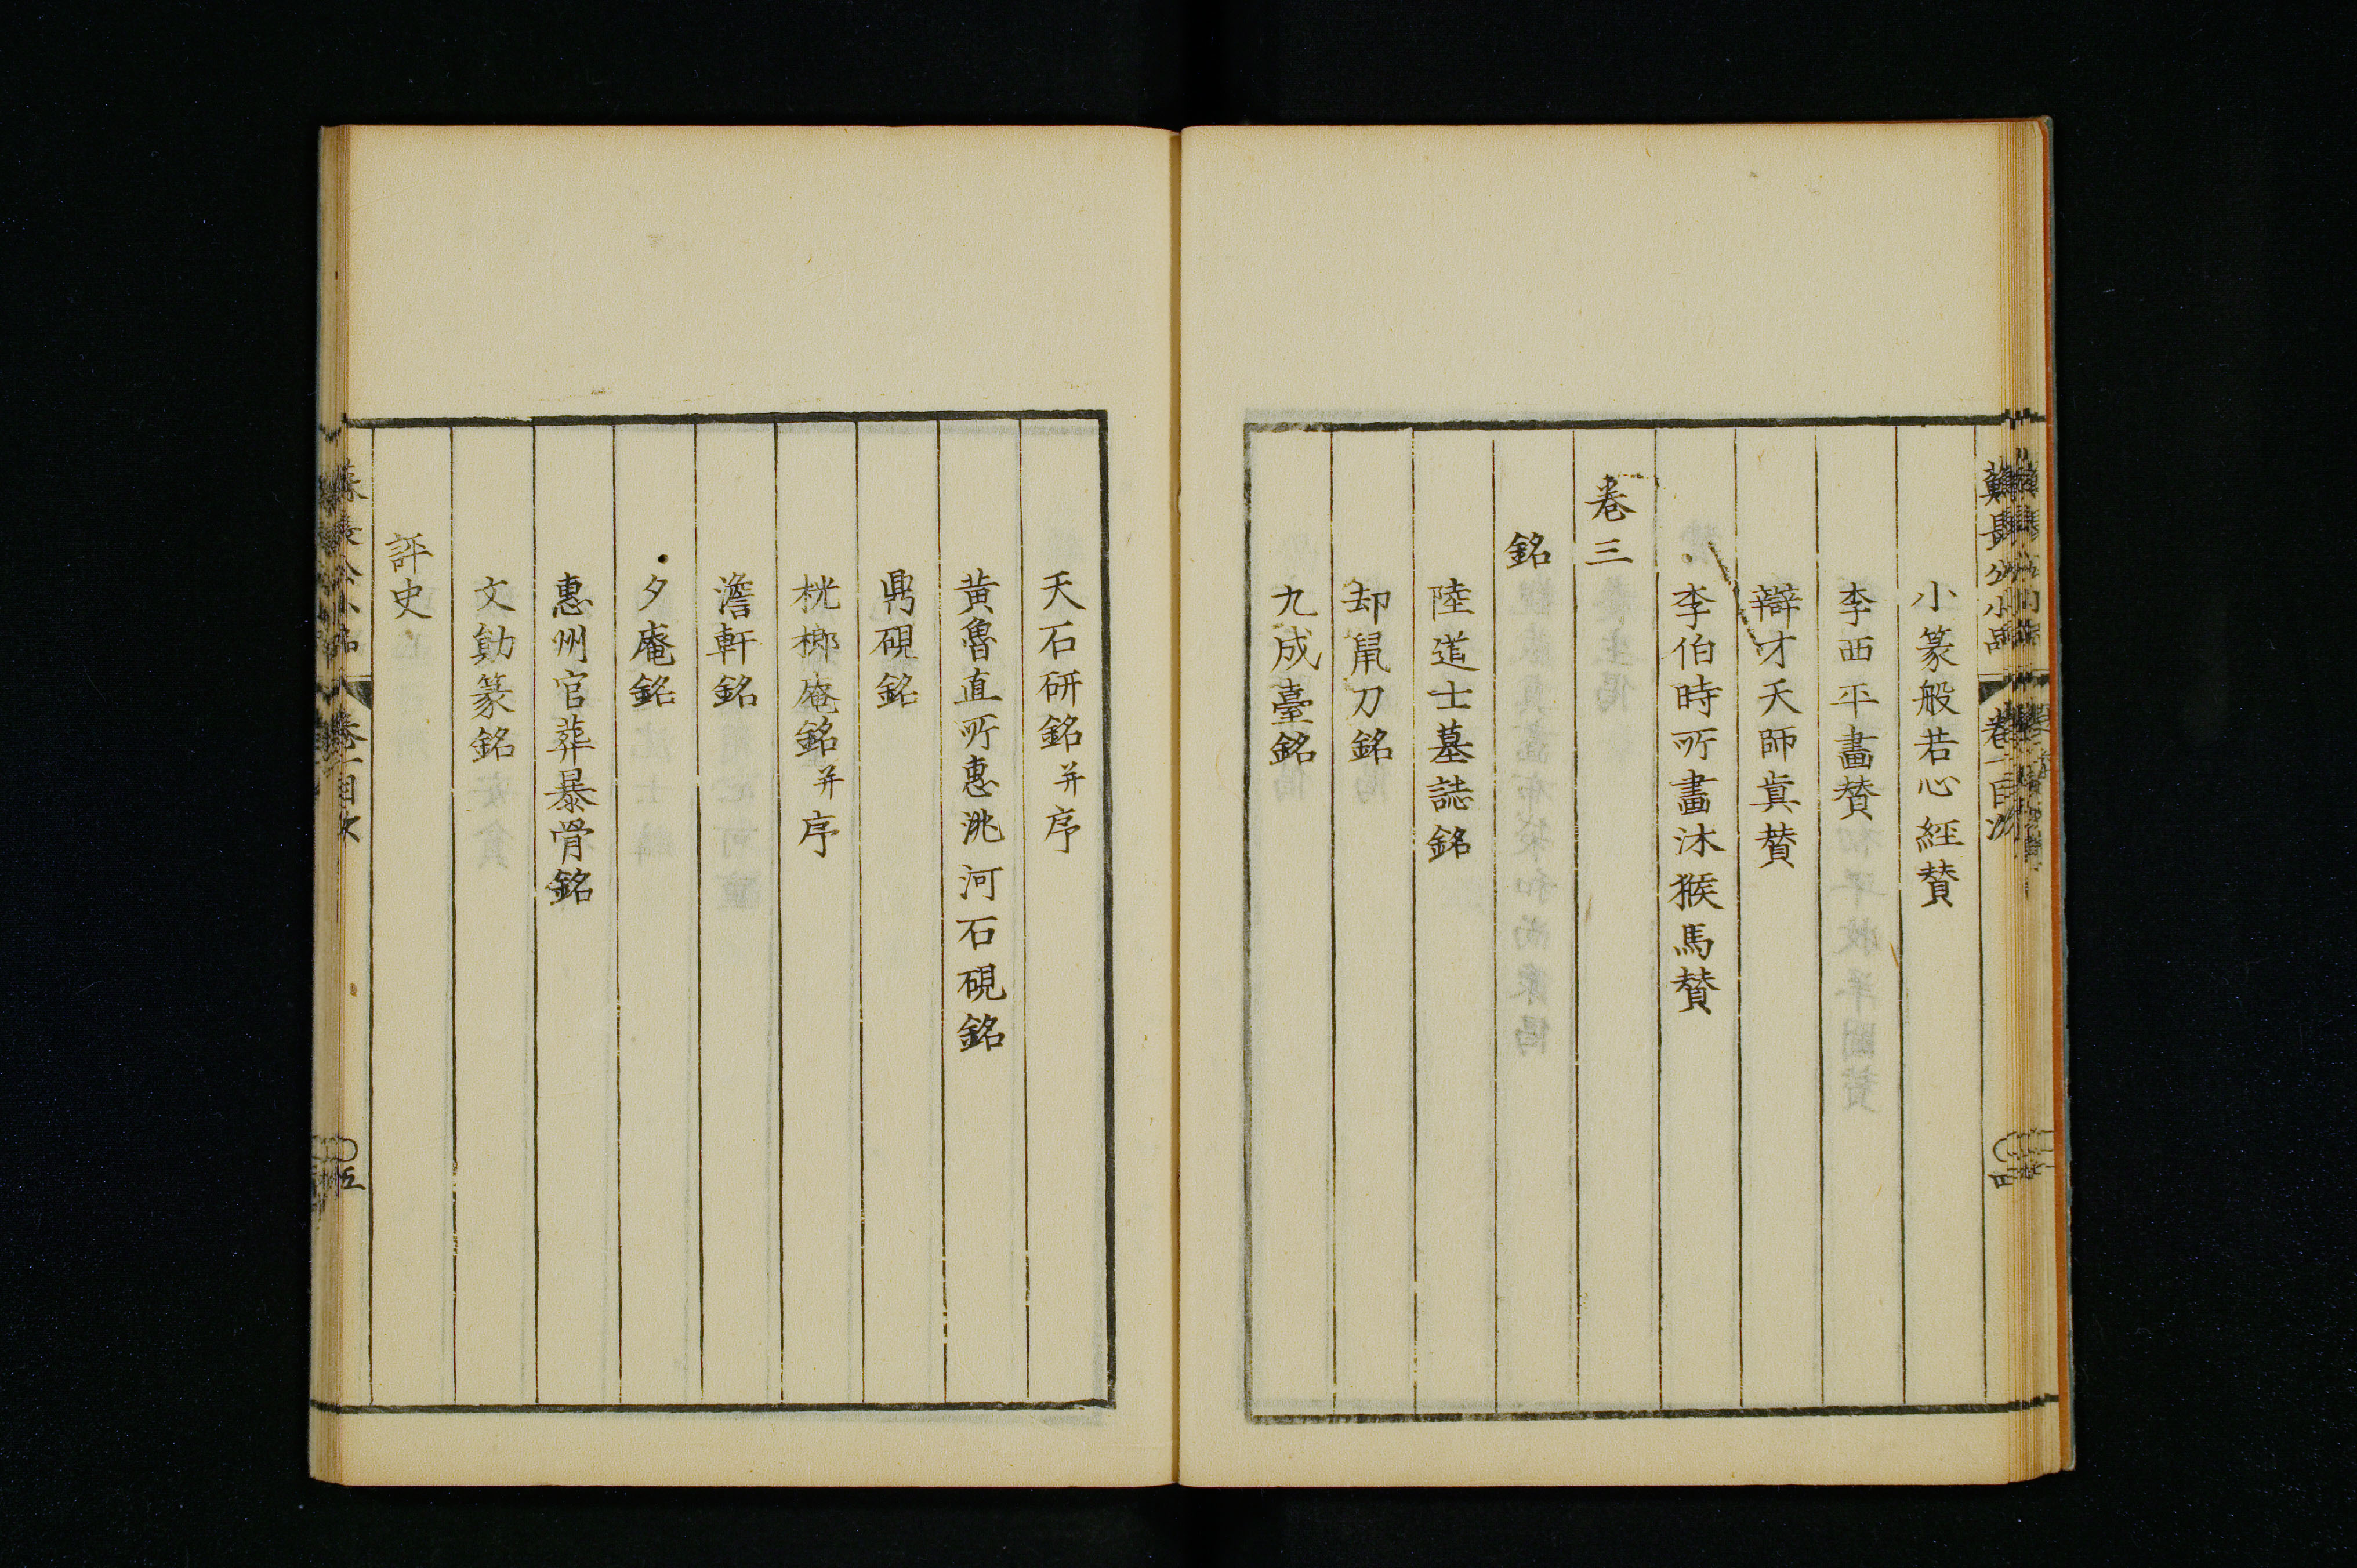 蘇長公小品 卷一目次 四
小篆般若心經賛
李西平畫賛
辯才天師真賛
李伯時所畫沐猴馬賛
卷三
銘
陸道士墓誌銘
却鼠刀銘
九成臺銘
天石研銘并序
黃魯直所惠洮河石硯銘
鼎硯銘
桄榔庵銘并序
澹軒銘
夕庵銘
惠州官葬暴骨銘
文勛篆銘
評史
蘇長公小品 卷一目次 五